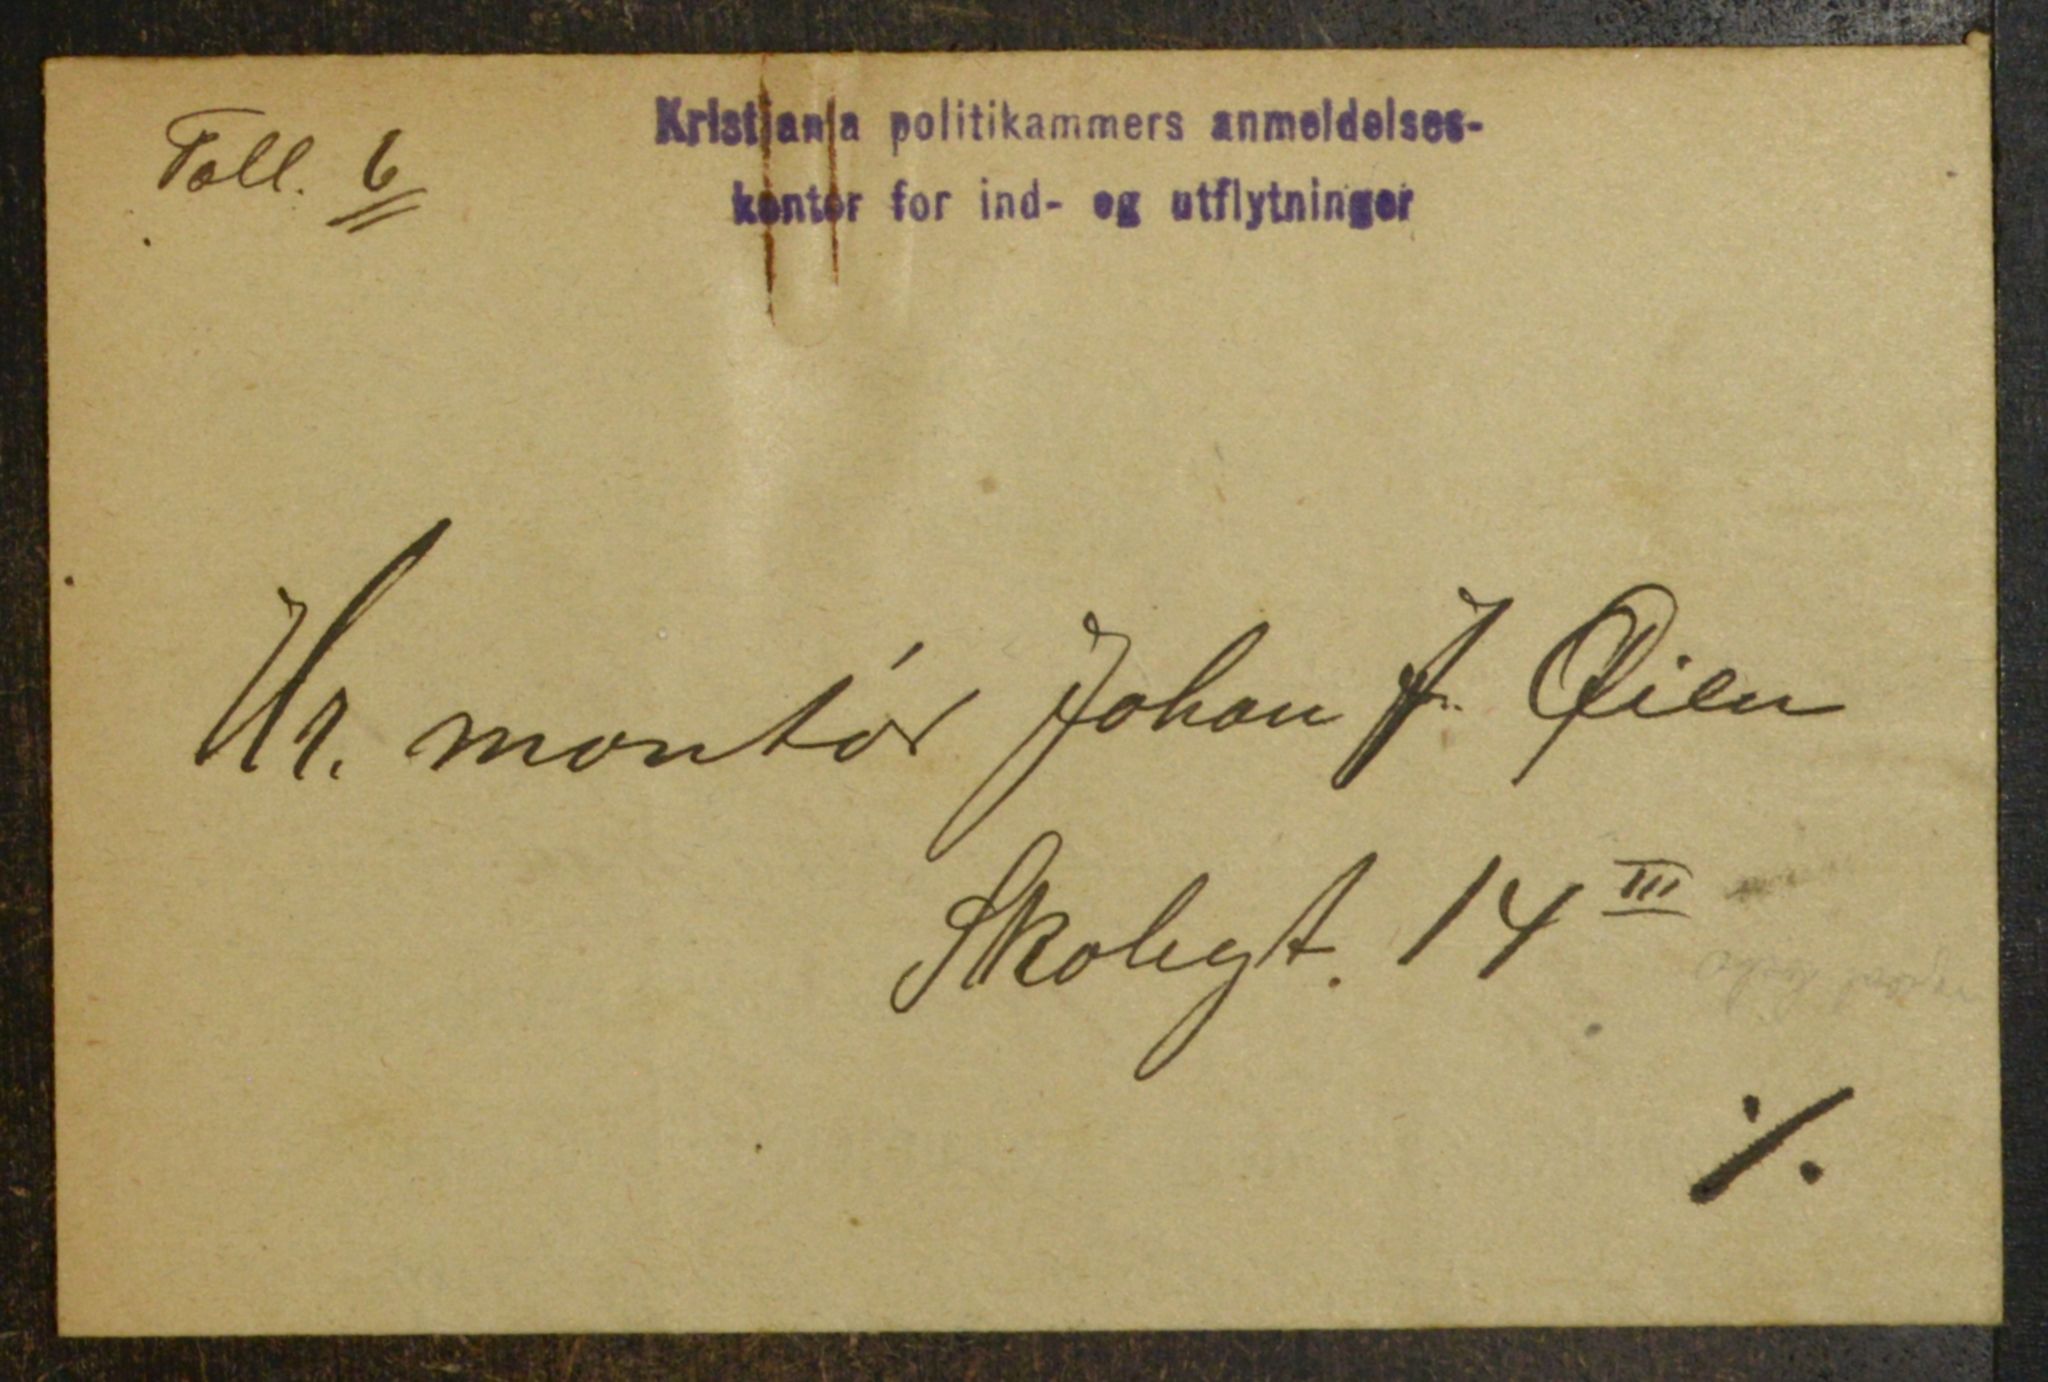 Toll. 6
Kristiania politikammers anmeldelses-
kontor for ind- og utflytninger
Hr. montór Johan J. Øien
Skolegt. 14 III
./.